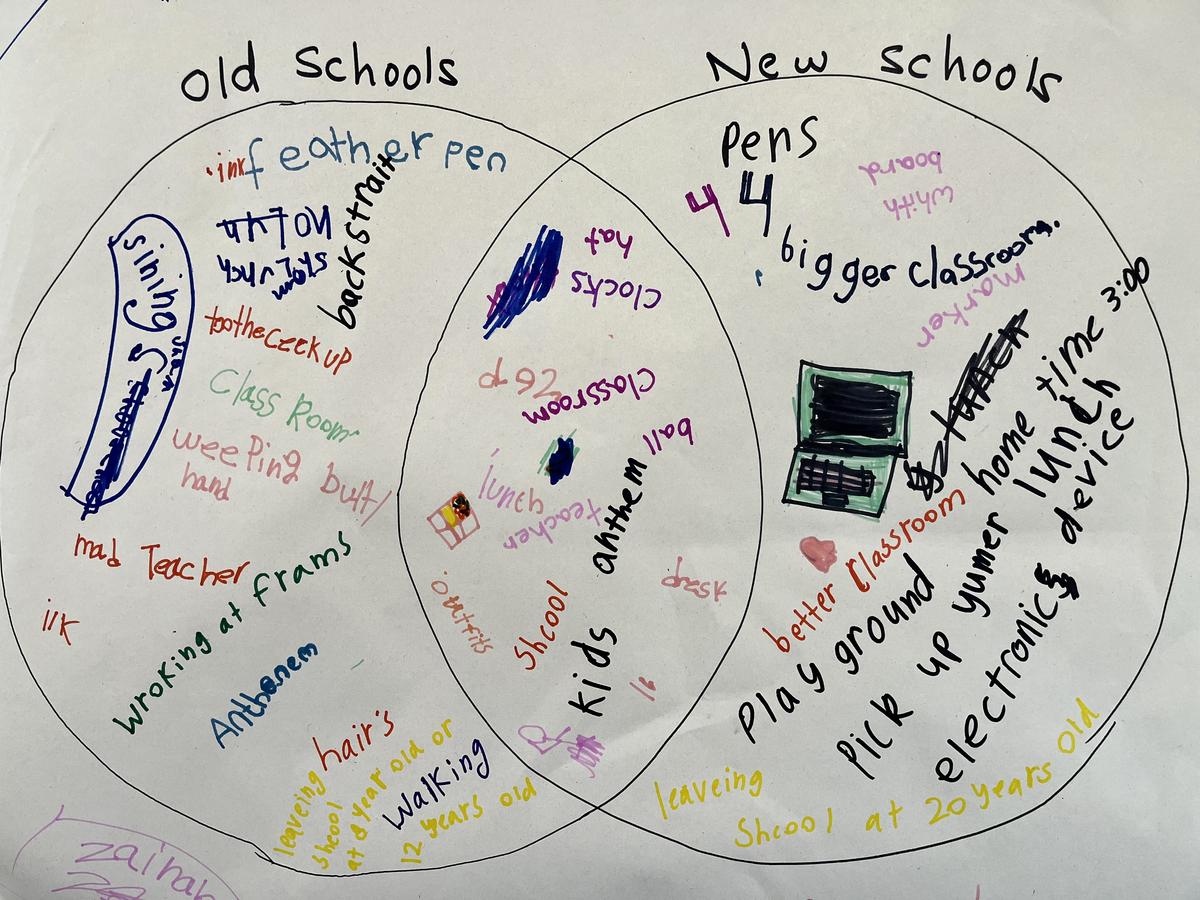 old schools
New schools
ink
feather pen
backstrait
NO Lun
sining
tootheczekup
Class Room
weeping butt/
hand
mad Teacher
ilk
wroking at frams
Anthanem
hair's
leaveing
shcool
at 8 year old or
12 years old
walking
hat
clocks
classroom
ball
lunch
teacher
anthem
outfits
Shcool
kids
pens
44
whith
board
bigger classrooms.
marker
home time 3:00
better Classroom
Play ground
Pick up yumer lunch
electronic device
leaveing
Shcool at 20 years old
zainab